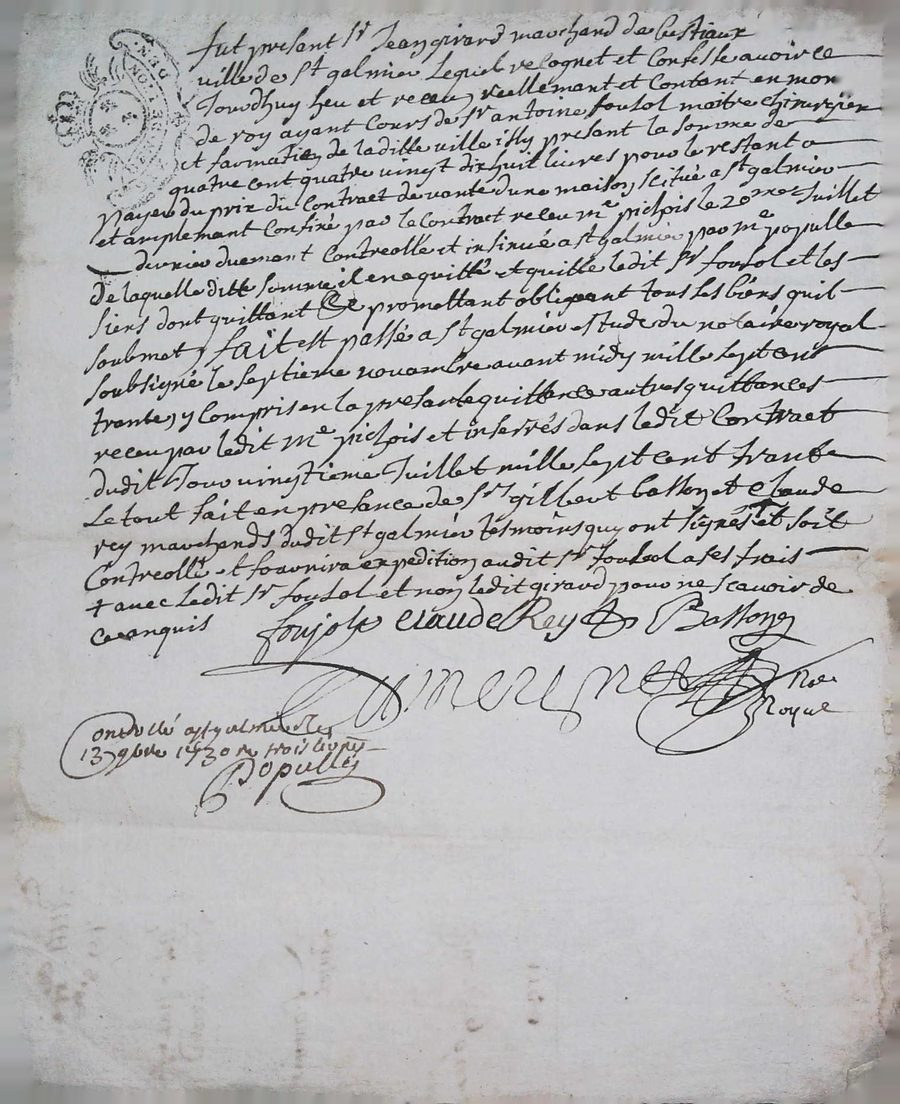 GEN. DE LYON
fut present sr Jean girard marchand de bestiaux
ville de st galmier lequel recognet et Confesse avoir ce
Jourdhuy heu et receu reellemant et Contant en mon
de roy ayant Cours de sr antoine foujol maitre chirurgien
et farmatien de laditte ville issy presant la somme de
quatre cent quatre vingt dix huit livres pour le restant a
payer du prix du Contract de vante dune maison scitué a st galmier
et amplemant Confiné par le Contract receu me pichois le 20me Juillet
dernier duemant Controollé et insinué a st galmier par me populle
de laquelle ditte somme il en a quitté et quitte ledit sr foujol et les
siens dont quittant &c promettant obligeant tous ses biens quil
soubmet, fait est passé a st galmier estude du notaire royal
soubsigné le septieme novambre avant midy mille sept cent
trante, y Compris en la presante quittance autres quittances
receu par ledit me pichois et inserrés dans ledit Contract
dudit Jour vingtieme Juillet mille sept cent trante
Le tout fait en presance de srs gilbert bassoy et claude
rey marchands dudit st galmier tesmoins quy ont signés + et soit
Controollé et fournira expedition audit sr foujol a ses frais
+ avec ledit sr foujol et non ledit girard pour ne scavoir de
ce anquis
foujols claude Rey Bassoy
Noe
Royal
Controllé a st galmier le
13 9bre 1730 re trois livres
Populle